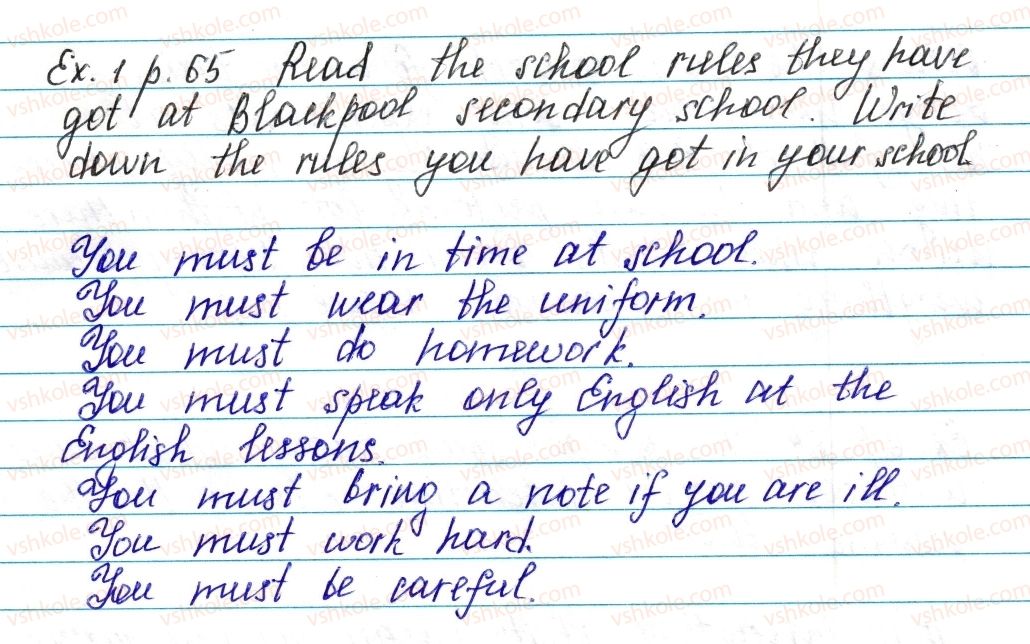 Ex. 1 p. 65 Read the school rules they have
got at Blackpool secondary school. Write
down the rules you have got in your school
You must be in time at school.
You must wear the uniform.
You must do homework.
You must speak only English at the
English lessons.
You must bring a note if you are ill.
You must work hard.
You must be careful.